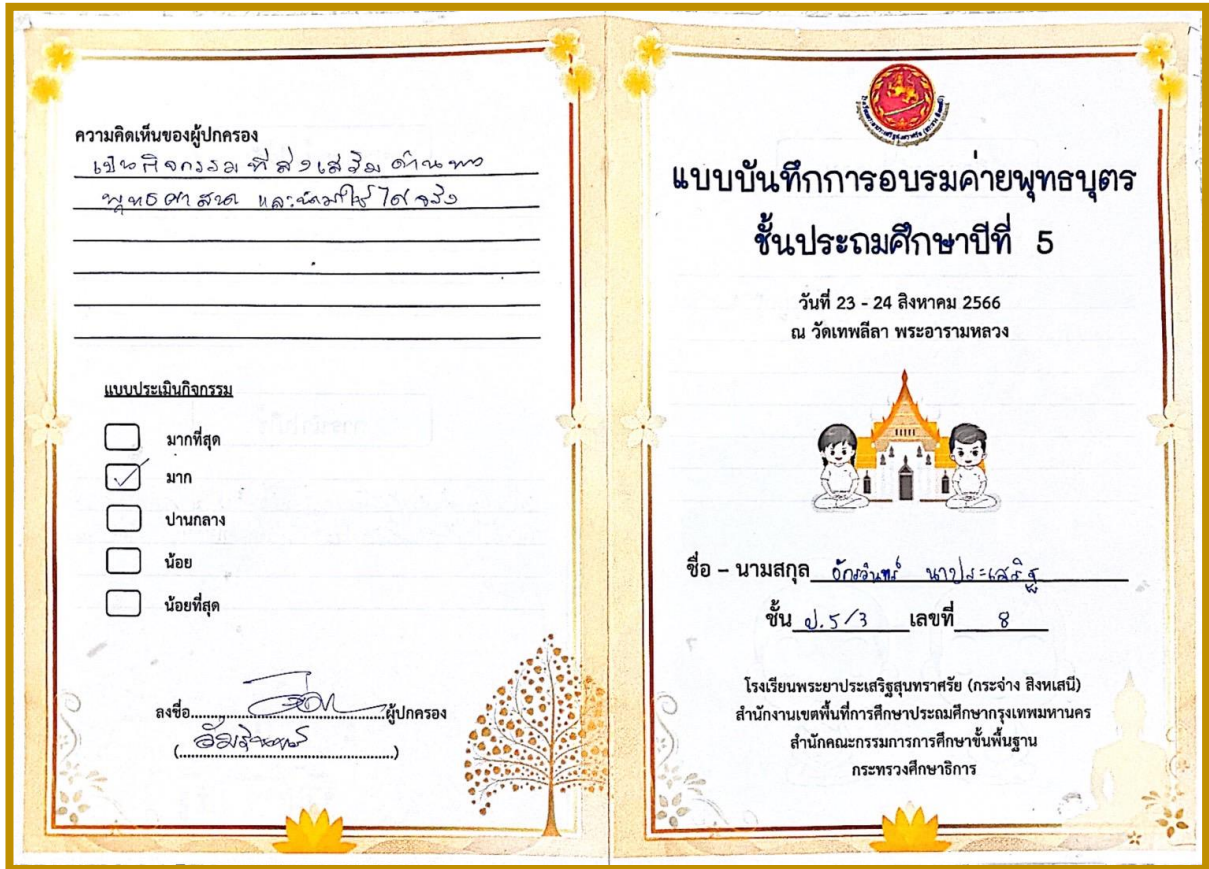 ความคิดเห็นของผู้ปกครอง
เป็นกิจกรรมที่ส่งเสริมด้านทาง
พุทธศาสต และนำมาใช้ได้จริง
แบบประเมินกิจกรรม
มากที่สุด
มาก
ปานกลาง
น้อย
น้อยที่สุด
ลงชื่อ..............................ผู้ปกครอง
แบบบันทึกการอบรมค่ายพุทธบุตร
ชั้นประถมศึกษาปีที่ 5
วันที่ 23 - 24 สิงหาคม 2566
ณ วัดเทพลีลา พระอารามหลวง
ชื่อ – นามสกุล อัครวินท์ นาประเสริฐ
ชั้น ป.5/3 เลขที่ 8
โรงเรียนพระยาประเสริฐสุนทราศรัย (กระจ่าง สิงหเสนี)
สำนักงานเขตพื้นที่การศึกษาประถมศึกษากรุงเทพมหานคร
สำนักคณะกรรมการการศึกษาขั้นพื้นฐาน
กระทรวงศึกษาธิการ